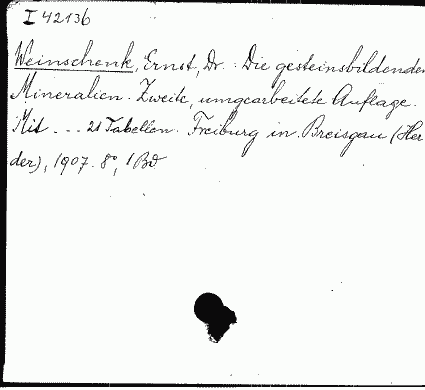 I 42136
Weinschenk, Ernst, Dr.: Die gesteinsbildenden
Mineralien. Zweite, umgearbeitete Auflage.
Mit ... 21 Tabellen. Freiburg in Breisgau (Her
der), 1907. 8°, 1 Bd